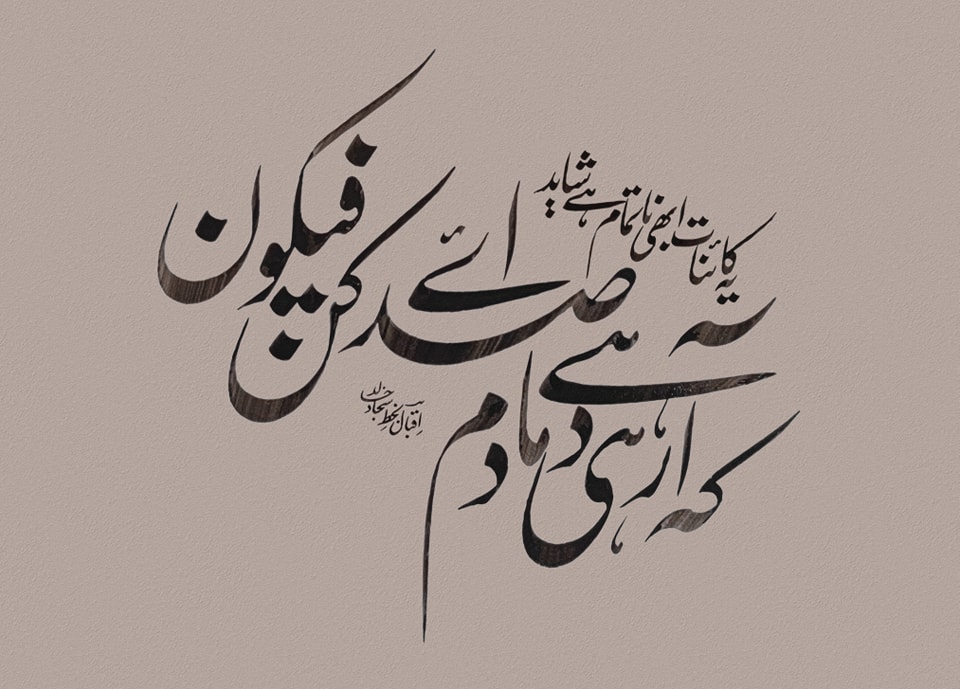 یہ کائنات ابھی ناتمام ہے شاید
کہ آ رہی ہے دمادم
صدائے کن فیکون
اقبال بخط سجاد خالد